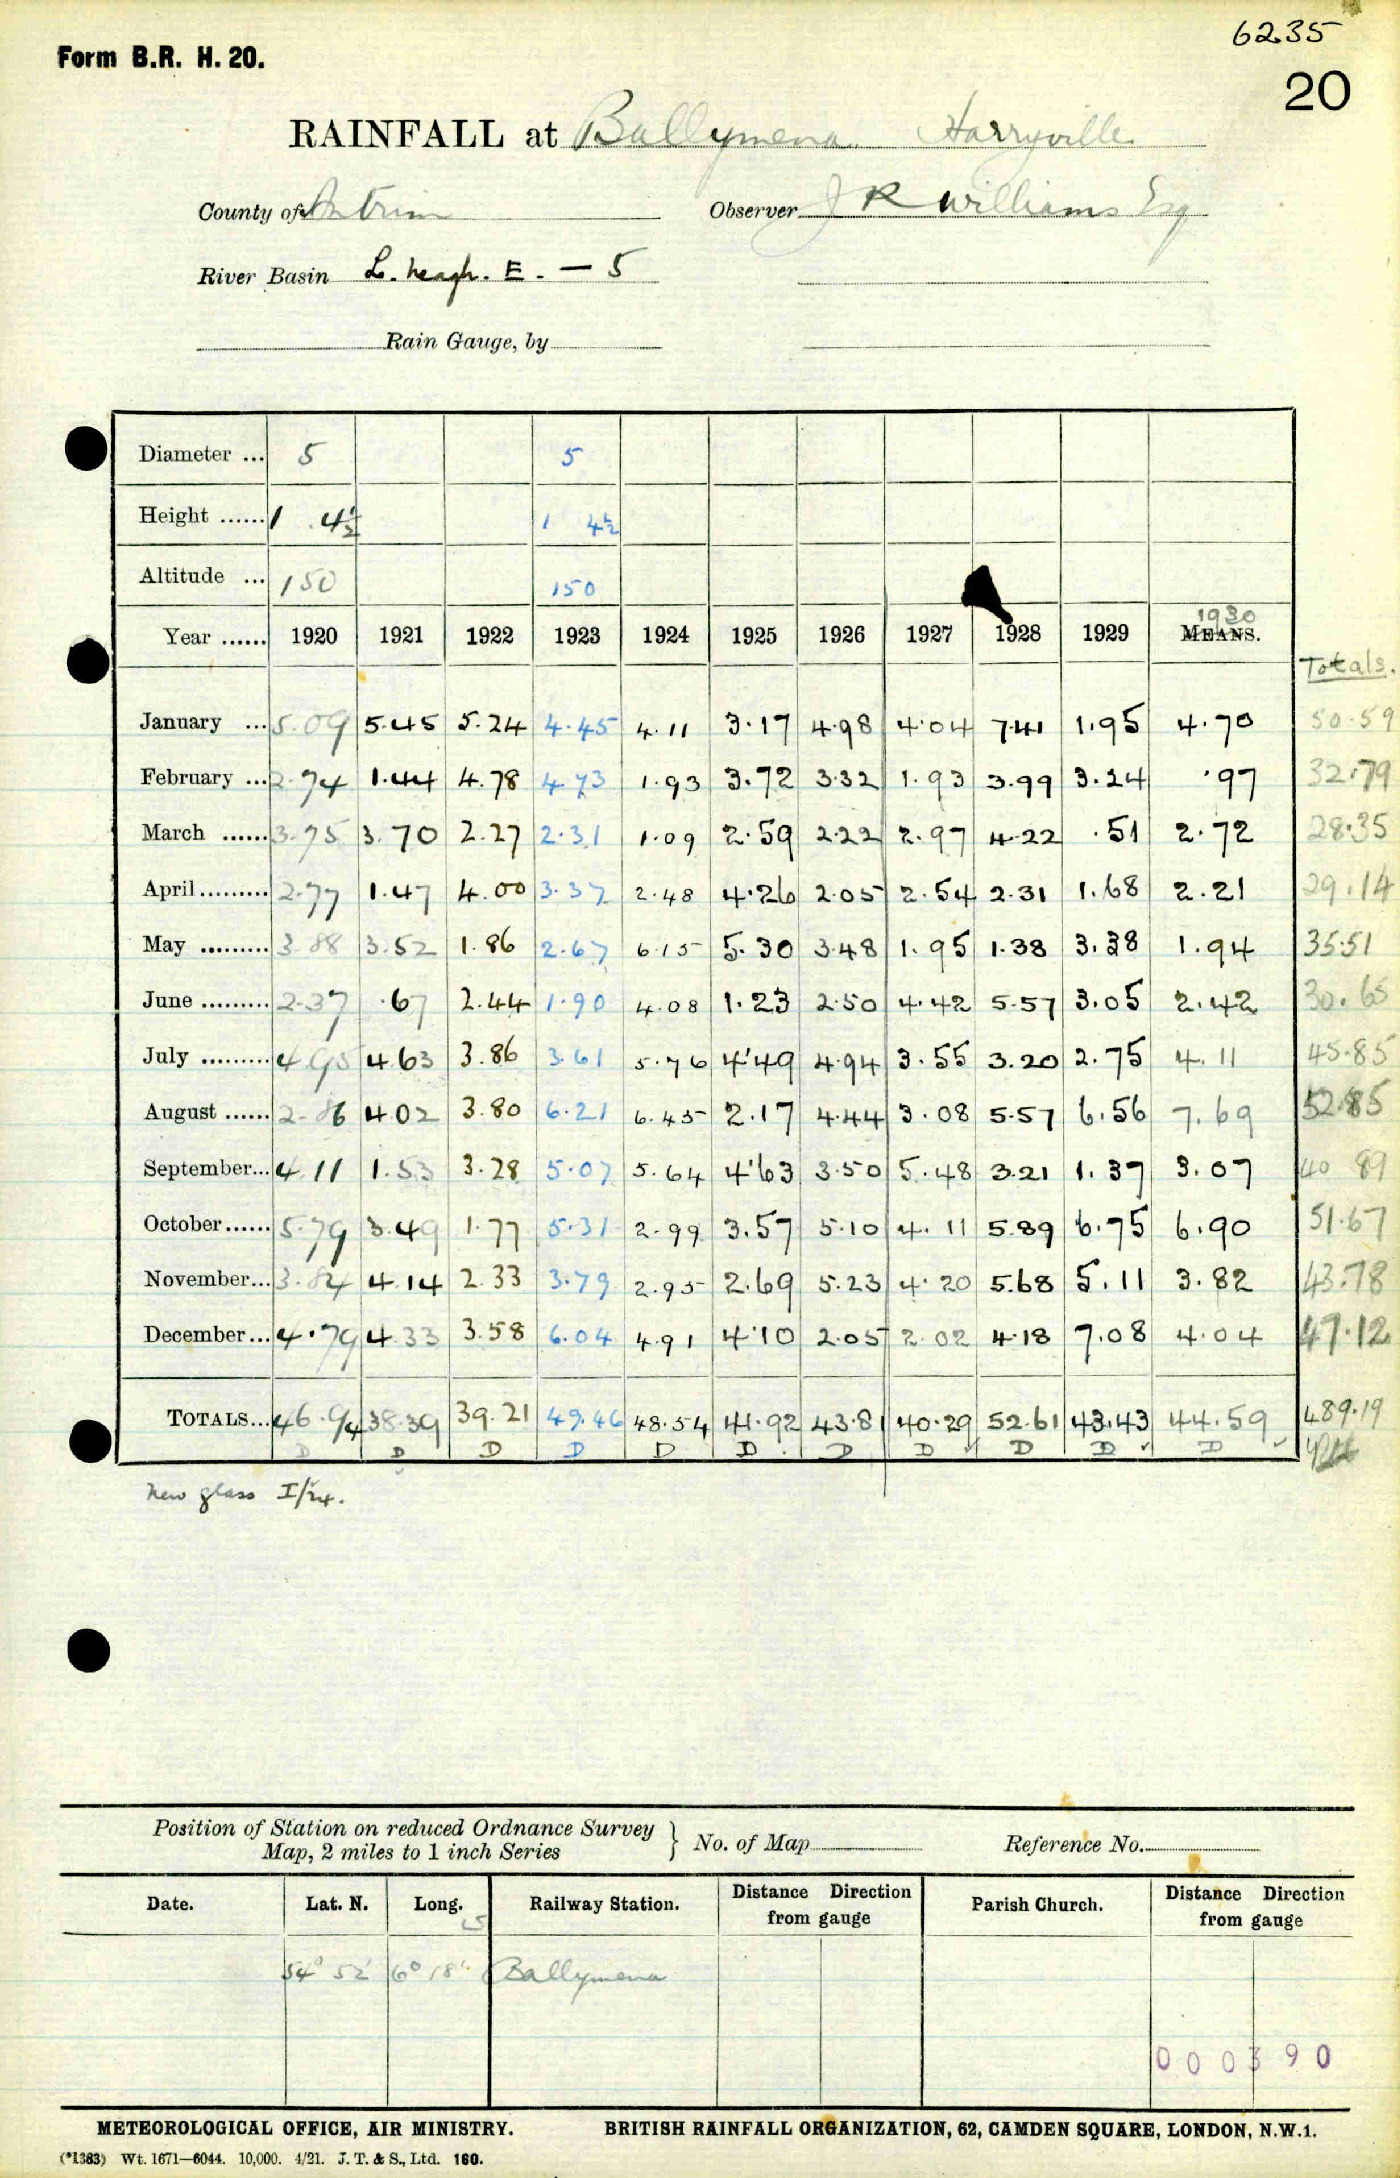 6235
Form B.R. H. 20.
20
RAINFALL at Ballymena. Harryville
County of Antrim Observer J R Williams Esq
River Basin L. Neagh. E. — 5
Rain Gauge, by
Diameter ... 5 5
Height ...... 1 4½ 1 4½
Altitude ... 150 150
1930
Year ...... 1920 1921 1922 1923 1924 1925 1926 1927 1928 1929 MEANS.
Totals.
January ... 5.09 5.45 5.24 4.45 4.11 3.17 4.98 4.04 7.41 1.95 4.70 50.59
February ... 2.74 1.44 4.78 4.73 1.93 3.72 3.32 1.93 3.99 3.24 .97 32.79
March ...... 3.75 3.70 2.27 2.31 1.09 2.59 2.22 2.97 4.22 .51 2.72 28.35
April ......... 2.77 1.47 4.00 3.37 2.48 4.26 2.05 2.54 2.31 1.68 2.21 29.14
May ......... 3.88 3.52 1.86 2.67 6.15 5.30 3.48 1.95 1.38 3.38 1.94 35.51
June ......... 2.37 .67 2.44 1.90 4.08 1.23 2.50 4.42 5.57 3.05 2.42 30.65
July ......... 4.95 4.63 3.86 3.61 5.76 4.49 4.94 3.55 3.20 2.75 4.11 45.85
August ...... 2.86 4.02 3.80 6.21 6.45 2.17 4.44 3.08 5.57 6.56 7.69 52.85
September... 4.11 1.53 3.28 5.07 5.64 4.63 3.50 5.48 3.21 1.37 3.07 40 89
October...... 5.79 3.49 1.77 5.31 2.99 3.57 5.10 4.11 5.89 6.75 6.90 51.67
November... 3.84 4.14 2.33 3.79 2.95 2.69 5.23 4.20 5.68 5.11 3.82 43.78
December... 4.79 4.33 3.58 6.04 4.91 4.10 2.05 2.02 4.18 7.08 4.04 47.12
TOTALS... 46.94 38.39 39.21 49.46 48.54 41.92 43.81 40.29 52.61 43.43 44.59 489.19
D D D D D D D D D D D
New glass I/24.
Position of Station on reduced Ordnance Survey
Map, 2 miles to 1 inch Series } No. of Map Reference No.
Date. Lat. N. Long. Railway Station. Distance Direction from gauge Parish Church. Distance Direction from gauge
54° 52' 6° 18' Ballymena
000390
METEOROLOGICAL OFFICE, AIR MINISTRY. BRITISH RAINFALL ORGANIZATION, 62, CAMDEN SQUARE, LONDON, N.W.1.
(*1383) Wt. 1671—6044. 10,000. 4/21. J. T. & S., Ltd. 160.